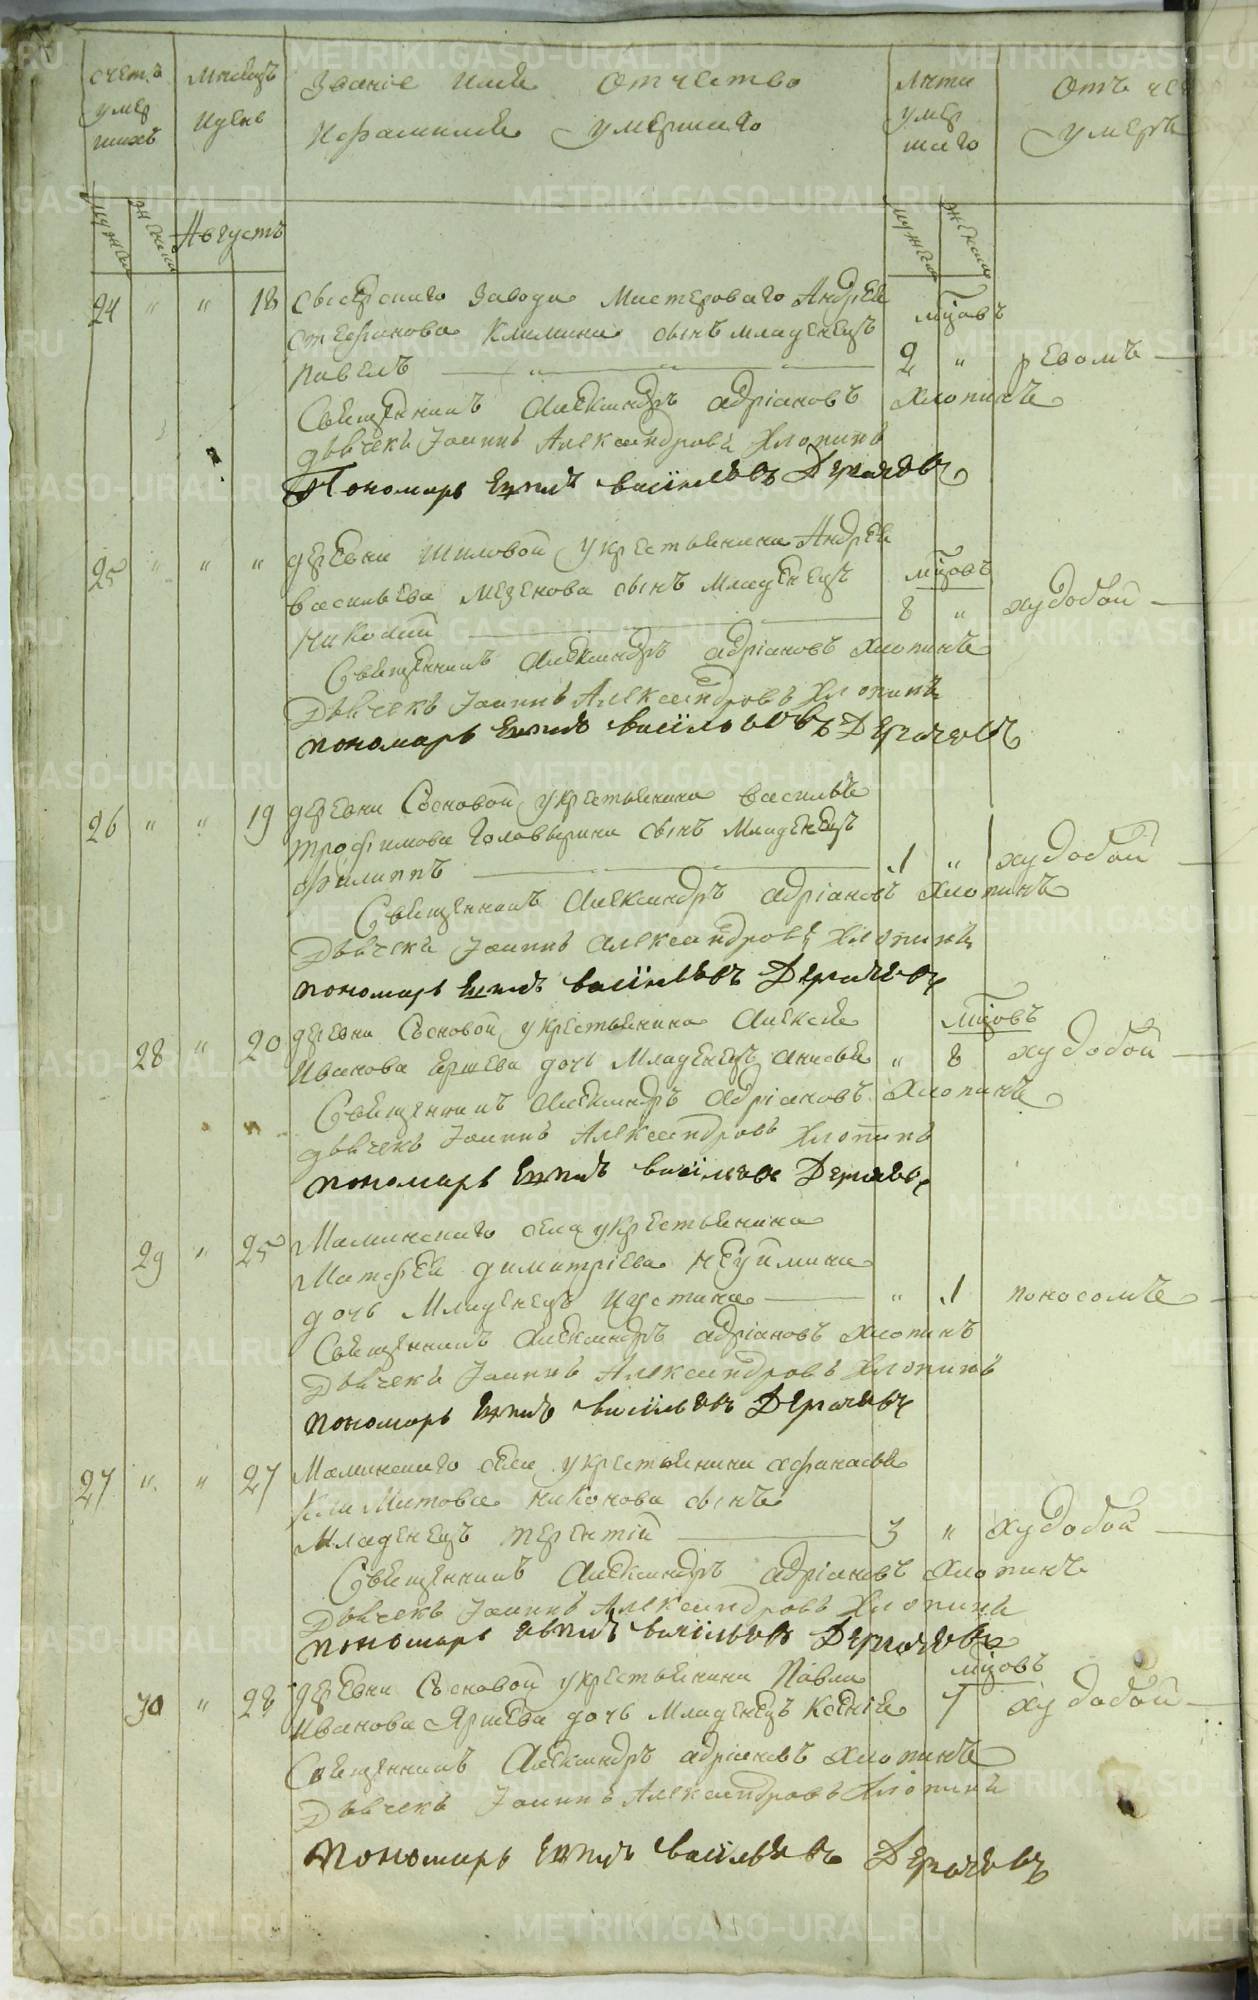 счетъ умер шихъ
мѣсяцъ и день
Званіе имя отчество
и фамилія умершаго
лѣта умер шаго
отъ че
умеръ
мужеск женска Августъ мужеск женска
24 " " 18 Сысерскаго завода Мастероваго Андрея
Стефанова Климина сынъ младенецъ мцовъ
Павелъ 2 " ревомъ
Священникъ Александръ Адріановъ Хлопинъ
Дьячекъ Іоаннъ Александровъ Хлопинъ
Пономарь васильевъ Дерягевъ
25 " " " деревни Шиловой у крестьянина Андрея
васильева Мезенова сынъ младенецъ мцовъ
Николай 8 " худобой
Священникъ Александръ Адріановъ Хлопинъ
Дьячекъ Іоаннъ Александровъ Хлопинъ
пономарь васильевъ
26 " " 19 деревни Сосновой у крестьянина василья
трофимова Головырина сынъ младенецъ
Филиппъ 1 " худобой
Священникъ Александръ Адріановъ Хлопинъ
Дьячекъ Іоаннъ Александровъ Хлопинъ
пономарь васильевъ
28 " 20 деревни Сосновой у крестьянина Алексея мцовъ
Иванова Ершева дочь младенецъ Анисья " 8 худобой
Священникъ Александръ Адріановъ Хлопинъ
дьячекъ Іоаннъ Александровъ Хлопинъ
пономарь васильевъ
29 " 25 Маминскаго села у крестьянина
Матфея Димитріева Неуймина
дочь младенецъ Иустина " 1 поносомъ
Священникъ Александръ Адріановъ Хлопинъ
Дьячекъ Іоаннъ Александровъ Хлопинъ
пономарь васильевъ
27 " " 27 Маминскаго села у крестьянина Афанасья
Климитова Никонова сынъ
младенецъ терентій 3 " худобой
Священникъ Александръ Адріановъ Хлопинъ
Дьячекъ Іоаннъ Александровъ Хлопинъ
пономарь васильевъ
30 " 28 деревни Сосновой у крестьянина Павла мцовъ
Иванова Яршева дочь младенецъ Ксенія 7 худобой
Священникъ Александръ Адріановъ Хлопинъ
Дьячекъ Іоаннъ Александровъ Хлопинъ
пономарь васильевъ
METRIKI.GASO-URAL.RU